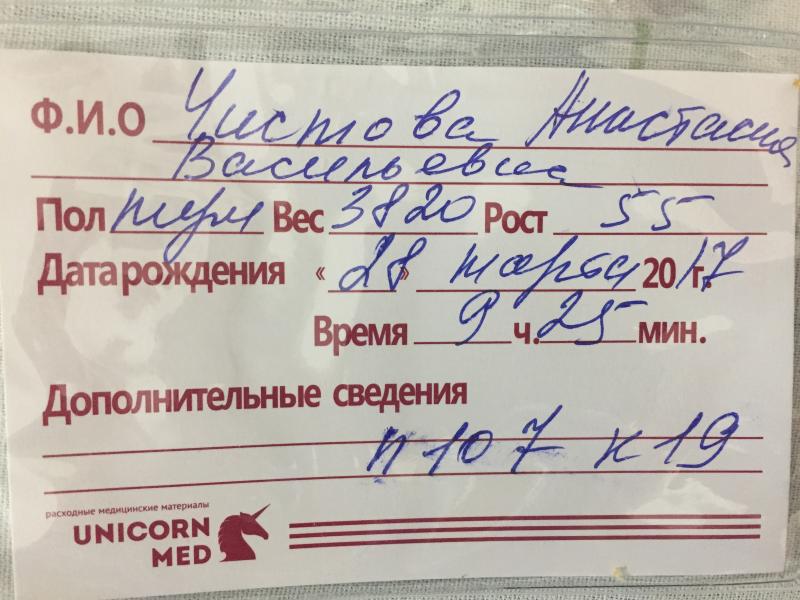 Ф.И.О Чистова Анастасия
Васильевна
Пол муж Вес 3820 Рост 55
Дата рождения «28» марта 2017 г.
Время 9 ч. 25 мин.
Дополнительные сведения
п 107 к 19
расходные медицинские материалы
UNICORN
MED